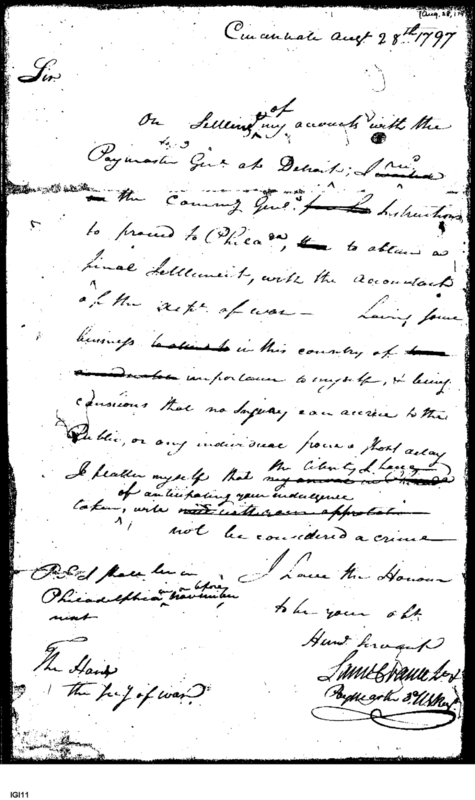 [Aug. 28, 17
Cincinnati Augt 28th 1797
Sir
of
On Settleing my accounts with the
Paymaster Genl at Detroit; I recd
the Comming Genls Instructions
to proceed to Philada, to obtain a
final Settlement, with the Accountant
of the Dept. of War — Having some
business in this country of
importance to myself, & being
conscious that no Injury can accrue to the
Public, or any individual from a short delay
I flatter myself that the liberty I have
of anticipating your indulgence
taken, will
not be considered a crime
P.S. I shall be in
I have the Honour
Philadelphia before November
to be your obt
next
Humb Servant
The Honb
the Secy of War
Paymaster 3d U S Regt
IGI11